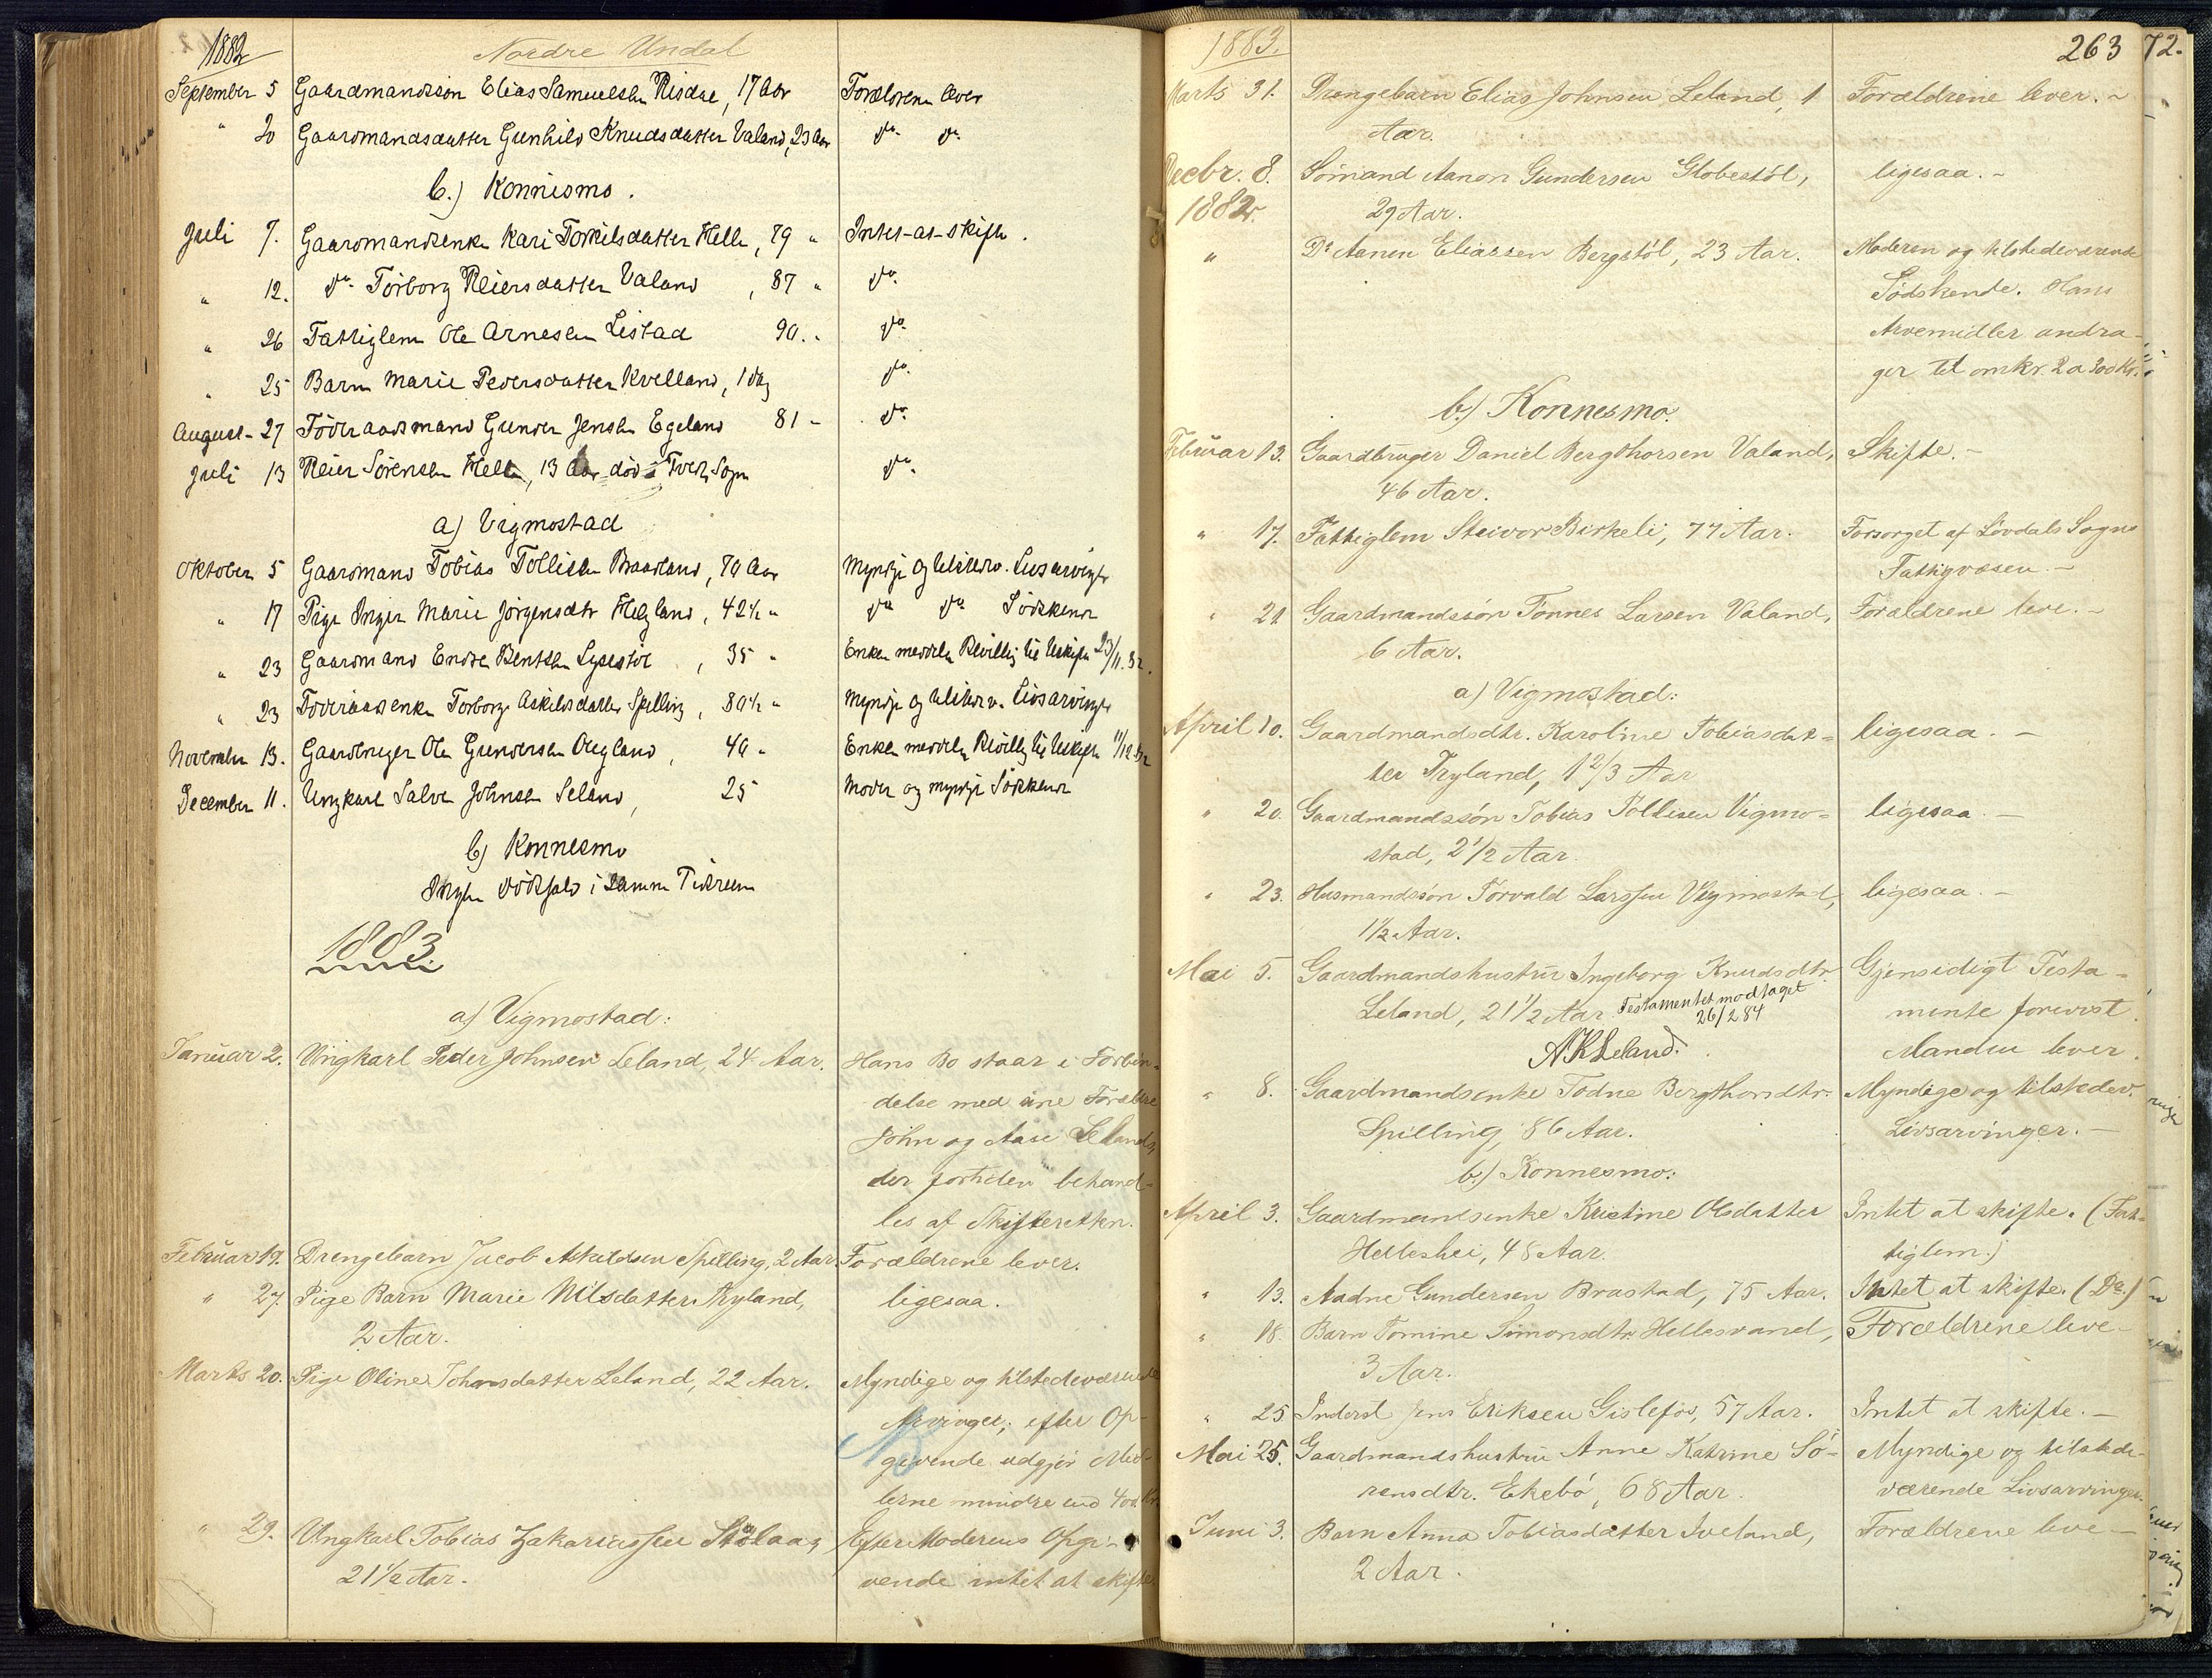 1882 Nordre Undal
September 5 Gaardmandssøn Elias Samuelsen Risdal, 17 Aar Forældrene lever
" 20 Gaardmandsdatter Gunhild Knudsdatter Valand, 23 Aar do. do.
b.) Konnismo.
Juli 7. Gaardmandsenke Kari Torkilsdatter Helle, 79 " Intet at skifte.
" 12. do. Torborg Reiersdatter Valand, 87 " do.
" 26 Fattiglem Ole Arnesen Listad 90. " do.
" 25 Barn Marie Pedersdatter Kvelland, 1 Dag do.
August - 27 Føderaadsmand Gunder Jensen Egeland 81 - do.
Juli 13 Reier Sørensen Helle, 13 Aar død i Tveds Sogn do.
a) Vigmostad
Oktober 5 Gaardmand Tobias Tollisen Braadland, 70 Aar Myndige og tilstedev. Livsarvinger
" 17 Pige Inger Marie Jørgensdtr Helgland, 42½ " do do Sødskende
" 23 Gaardmand Endre Bentsen Lysestøl, 35 " Enken meddelt Bevilling til Uskifte 23/11. 82.
" 23 Føderaadsenke Torborg Askildsdatter Spilling, 80½ " Myndige og tilstedev. Livsarvinger
November 13. Gaardbruger Ole Gundersen Augland, 40 " Enken meddelt Bevilling til Uskifte 11/12 82
December 11. Ungkarl Salve Johnsen Leland, 25 Moder og myndige Sødskende
b) Konnesmo
Ingen Dødsfald i samme Tidsrum
1883.
a) Vigmostad:
Januar 2. Ungkarl Peder Johnsen Leland, 24 Aar. Hans Bo staar i Forbin-
delse med sine Forældre
John og Aase Lelands,
der fortiden behand-
les af Skifteretten.
Februar 19. Drengebarn Jacob Askildsen Spilling, 2 Aar. Forældrene lever.
" 27. Pige Barn Marie Nilsdatter Tryland, ligesaa.
2 Aar.
Marts 20. Pige Oline Johnsdatter Leland, 22 Aar. Myndige og tilstedeværende
Arvinger; efter Op-
NB
givende udgjør Mid-
lerne mindre end 400 Kr.
" 29. Ungkarl Tobias Zakariassen Stølaas, Efter Moderens Opgi-
21½ Aar. vende intet at skifte
1883. 263 72.
Marts 31. Drengebarn Elias Johnsen Leland, 1 Forældrene lever. -
Aar.
Decbr. 8. Sømand Aanon Gundersen Globestøl, ligesaa. -
1882. 29 Aar.
" Do Aanen Eliassen Bergstøl, 23 Aar. Moderen og tilstedeværende
Sødskende. Hans
Arvemidler andra-
ger til omkr. 2 a 300 Kr.
b.) Konnesmo.
Februar 13. Gaardbruger Daniel Bergthorsen Valand, Skifte. -
46 Aar.
" 17. Fattiglem Steivor Birkeli, 77 Aar. Forsørget af Løvdals Sogns
Fattigvæsen. -
" 21 Gaardmandssøn Tønnes Larsen Valand, Forældrene leve. -
6 Aar.
a) Vigmostad:
April 10. Gaardmandsdtr. Karoline Tobiasdat= ligesaa. -
ter Tryland, 1 2/3 Aar
" 20. Gaardmandssøn Tobias Tollisen Vigmo= ligesaa. -
stad, 2 1/2 Aar.
" 23. Husmandssøn Torvald Larssen Vigmostad, ligesaa. -
1½ Aar.
Mai 5. Gaardmandshustru Ingeborg Knudsdtr Gjensidigt Testa-
Leland, 21 1/2 Aar. Testamentet modtaget mente forevist.
26/2 84
A K Leland. Manden lever.
" 8. Gaardmandsenke Todne Bergthorsdtr. Myndige og tilstedev.
Spilling, 86 Aar. Livsarvinger. -
b.) Konnesmo:
April 3. Gaardmandsenke Kristine Olsdatter Intet at skifte. (Fat-
Helleshei, 48 Aar. tiglem.)
" 13. Aadne Gundersen Brastad, 75 Aar. Intet at skifte. (Do.)
" 18. Barn Tomine Simonsdtr Hellesvand, Forældrene leve-
3 Aar.
" 25 Inderst Jens Eriksen Gislefos, 57 Aar. Intet at skifte. -
Mai 25. Gaardmandshustru Anne Katrine Sø- Myndige og tilstede-
rensdtr. Ekebø, 68 Aar. værende Livsarvinger.
Juni 3. Barn Anna Tobiasdatter Iveland, Forældrene leve -
2 Aar.